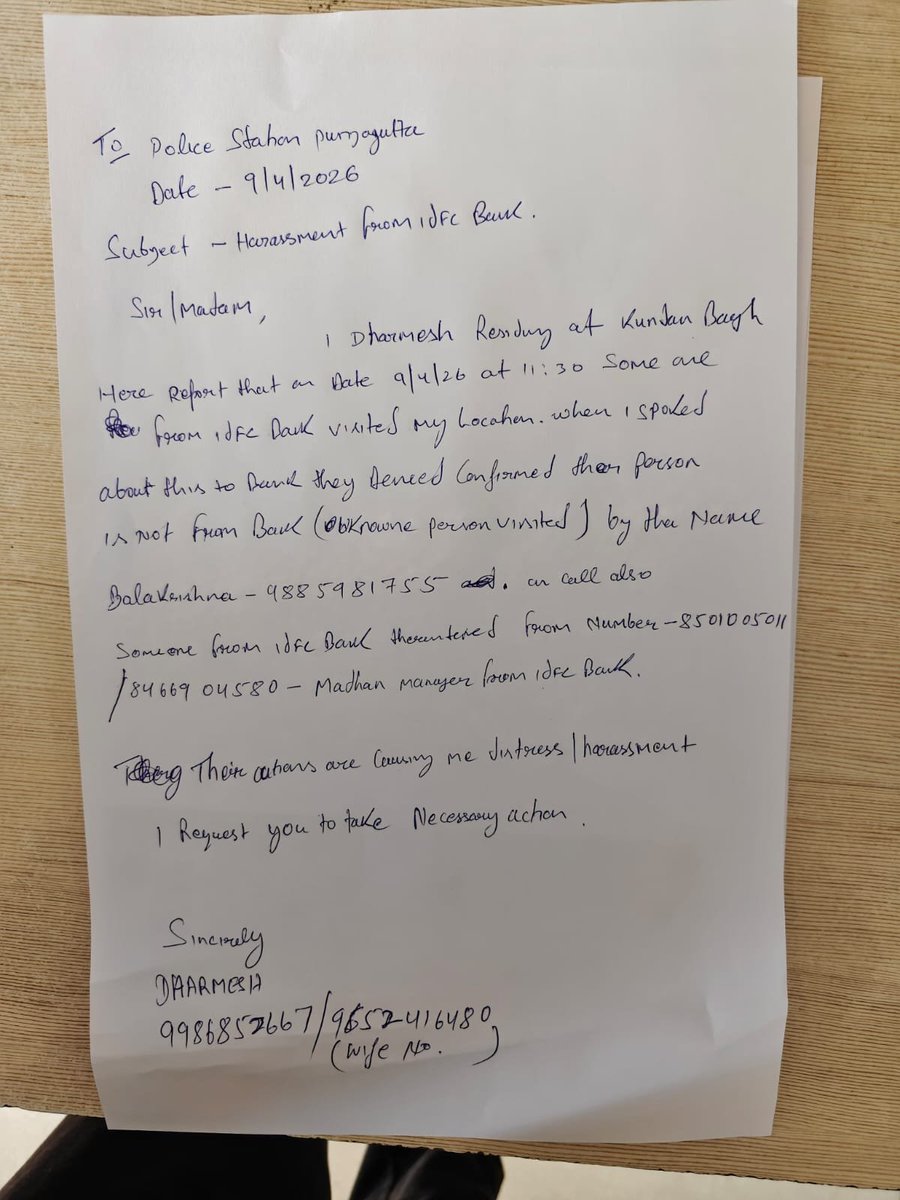 To Police Station punjagutta
Date - 9/4/2026
Subject - Harassment from idfc Bank.
Sir/Madam,
I Dharmesh Residing at Kundan Bagh
Here Report that on Date 9/4/26 at 11:30 Some one
from idfc Bank visited my Location. when i spoked
about this to Bank they denied confirmed their person
is not from Bank (Unknowne person visited) by the Name
Balakrishna - 9885981755 . on call also
Someone from idfc Bank from Number - 8501005011
/8466904580 - Madhan manager from idfc Bank.
Their actions are causing me distress/harassment
I Request you to take Necessary action.
Sincerely
DHARMESH
9986852667/9652416480
(wife No. )